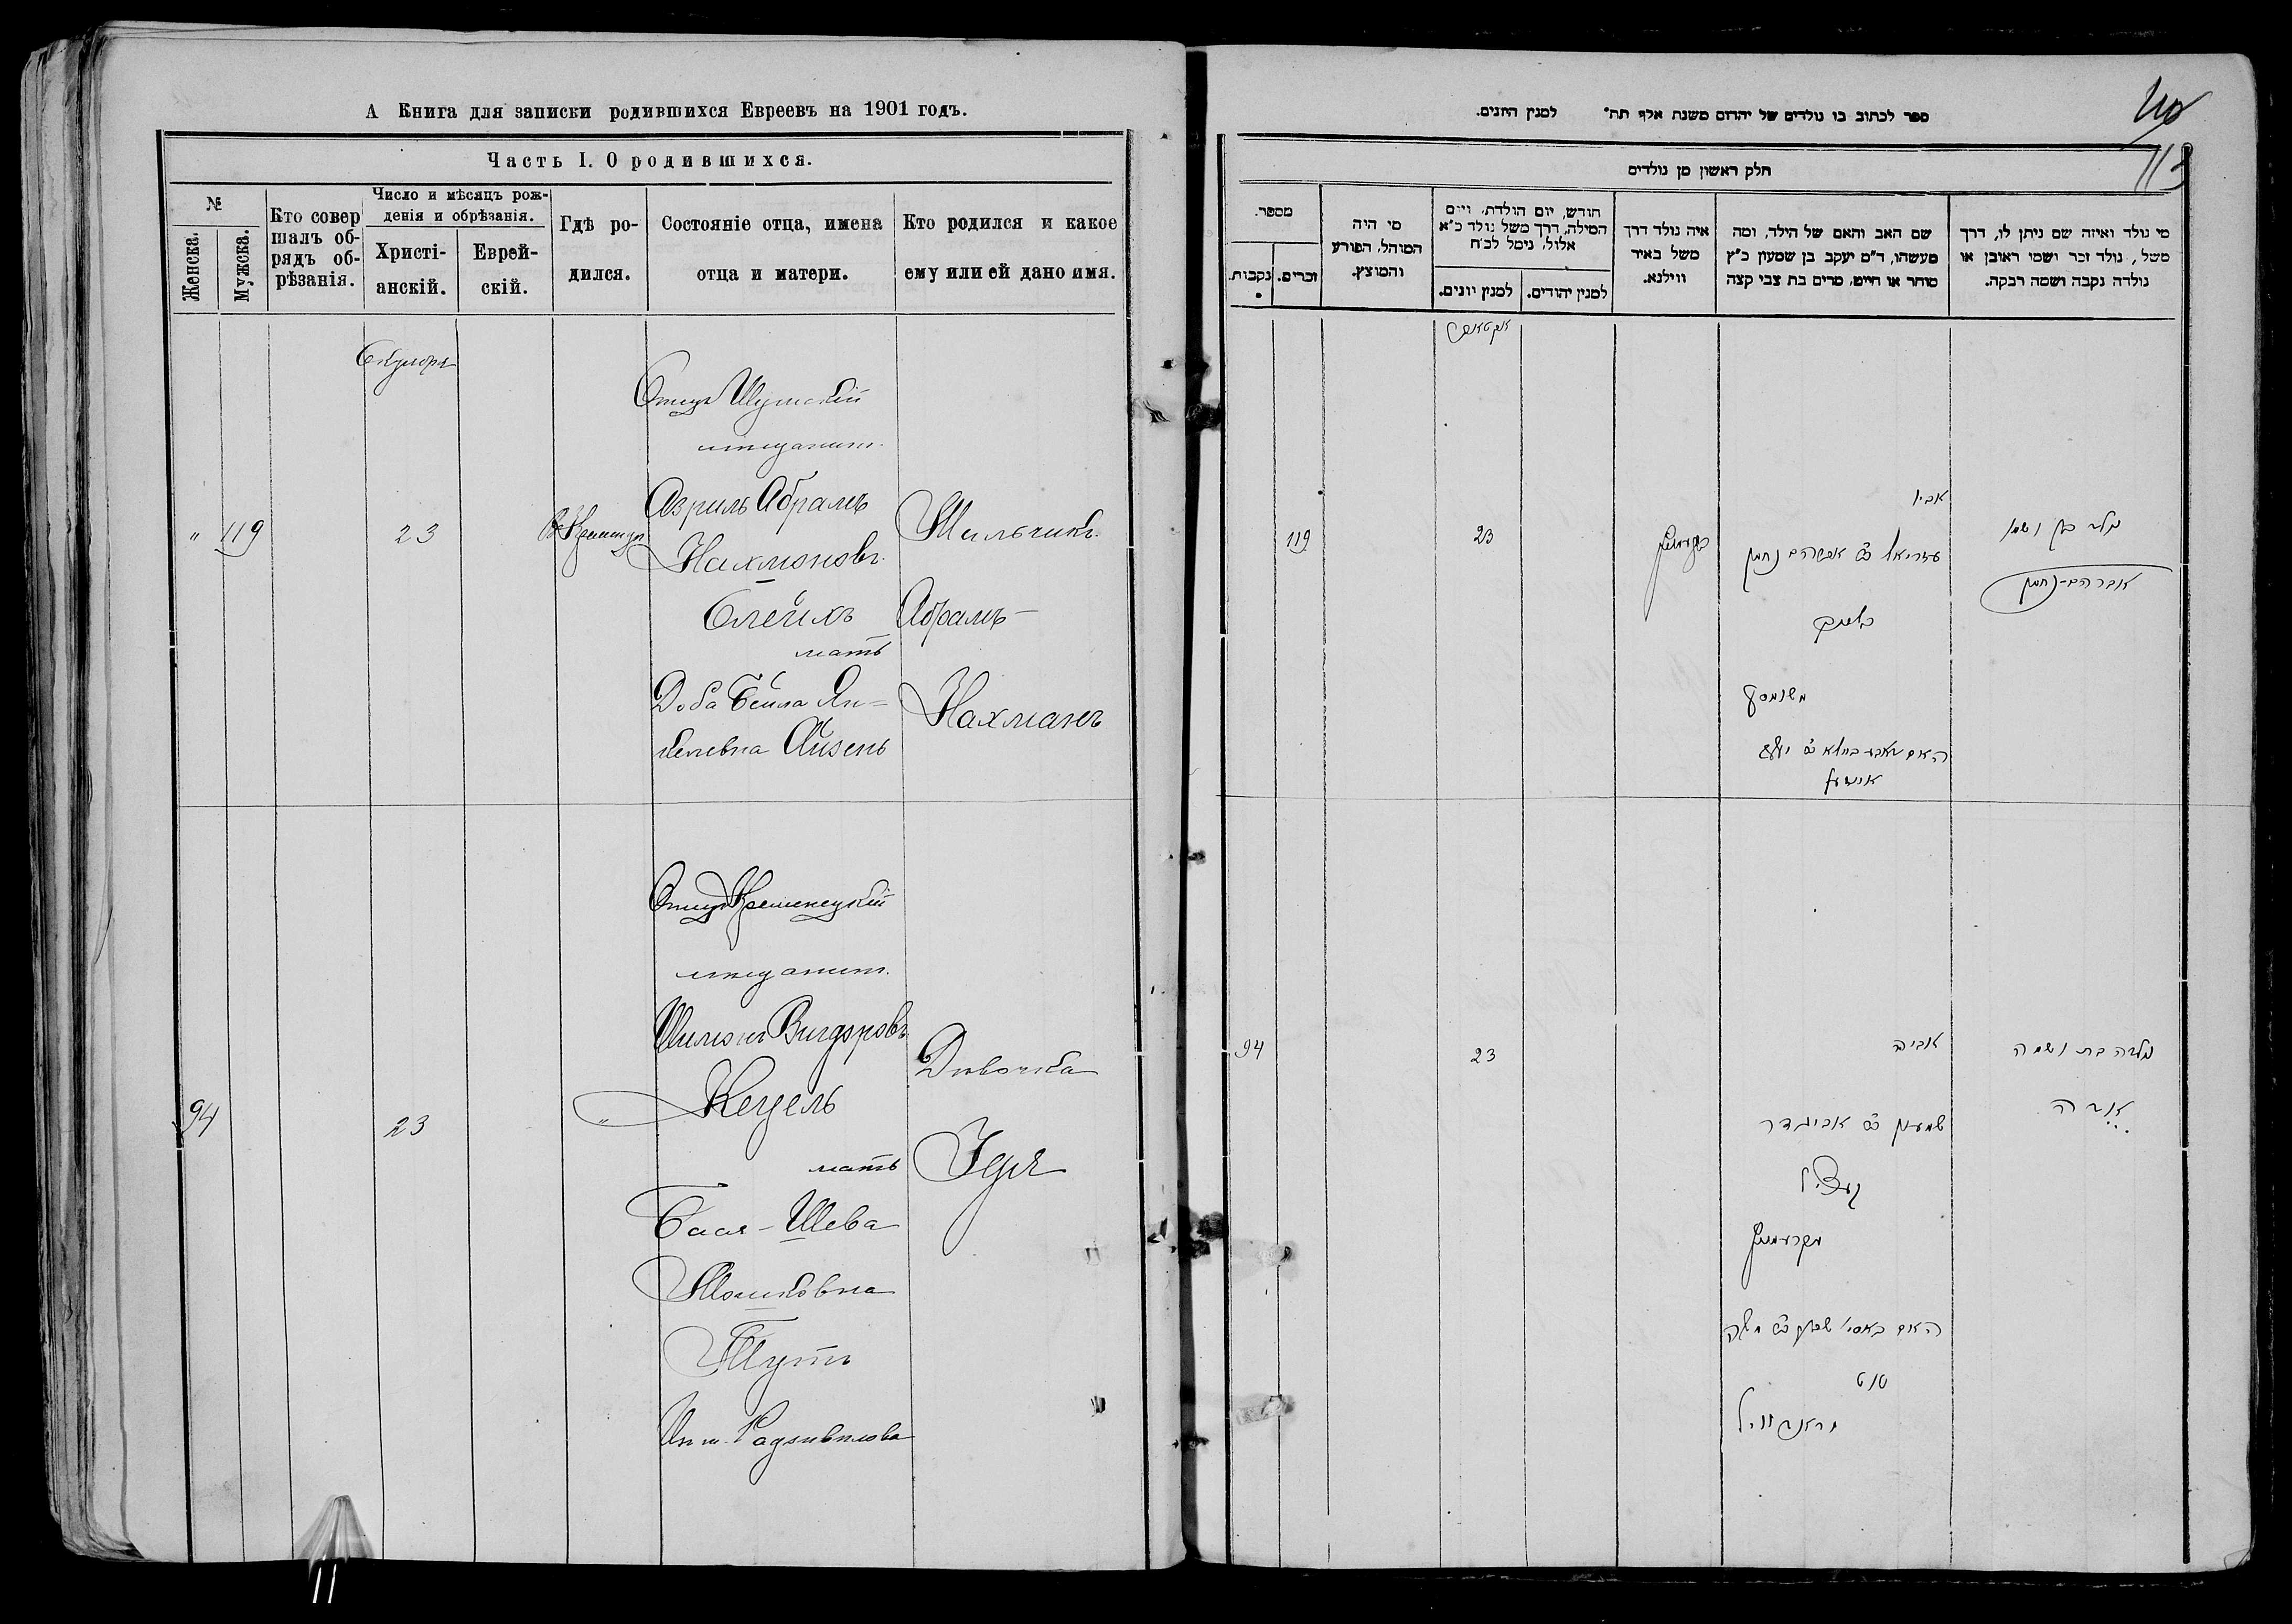 А Книга для записки родившихся Евреевъ на 1901 годъ.
Часть I. О родившихся.
№
Женска.
Мужска.
Кто совер
шалъ об-
рядъ об-
рѣзанія.
Число и мѣсяцъ рож-
денія и обрѣзанія.
Христі-
анскій.
Еврей-
скій.
Гдѣ ро-
дился.
Состояніе отца, имена
отца и матери.
Кто родился и какое
ему или ей дано имя.
Октября
Отецъ Шумскій
мѣщанинъ
" 119
23
Въ Кременцѣ
Азриль Абрамъ
Нахмоновъ
мать
Доба Бейла Ян=
келевна Айзенъ
Мальчикъ
Абрамъ-
Нахманъ
Отецъ Кременецкій
мѣщанин.
94
23
"
Шимонъ Вигдоровъ
Кецель
мать
Бася-Шева
Мошковна
Тутъ
Из м. Радзивилова
Дѣвочка
Идя
ספר לכתוב בו נולדים של יהדום משנת אלף תת״ למנין היונים.
113
חלק ראשון מן נולדים
מספר.
נקבות.
זכרים.
מי היה
המוהל, הפורע
והמוצץ.
חודש, יום הולדת, ויום
המילה, דרך משל נולד כ״א
אלול, נימל לכ״ח
למנין יונים.
למנין יהודים.
איה נולד דרך
משל באיר
ווילנא.
שם האב והאם של הילד, ומה
מעשהו, ד״מ יעקב בן שמעון כ״ץ
סוחר או חייט, מרים בת צבי קצה
מי נולד ואיזה שם ניתן לו, דרך
משל, נולד זכר ושמו ראובן או
נולדה נקבה ושמה רבקה.
אקטאבר
119
23
בקרעמניץ
אביו
עזריאל ב״ר אברהם נחמן
משומסק
נולד בן ושמו
אברהם-נחמן
94
23
אביה
שמעון ב״ר אביגדר
קעציל
מקרעמניץ
האם באסי שבע ב״ר משה
טוט
מראדזוויל
נולדה בת ושמה
אידה